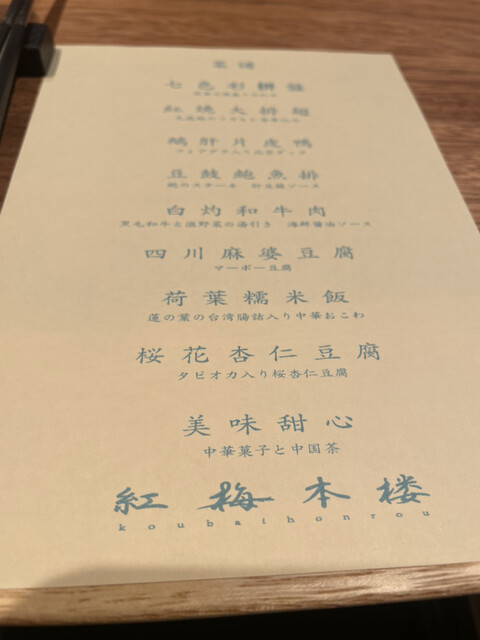 菜譜
七色彩拼盤
紅焼大排翅
鵝肝片皮鴨
フォアグラ入り北京ダック
豆鼓鮑魚排
鮑のステーキ 肝豆鼓ソース
白灼和牛肉
黒毛和牛と温野菜の湯引き 海鮮醤油ソース
四川麻婆豆腐
マーボー豆腐
荷葉糯米飯
蓮の葉の台湾腸詰入り中華おこわ
桜花杏仁豆腐
タピオカ入り桜杏仁豆腐
美味甜心
中華菓子と中国茶
紅梅本楼
koubaihonrou